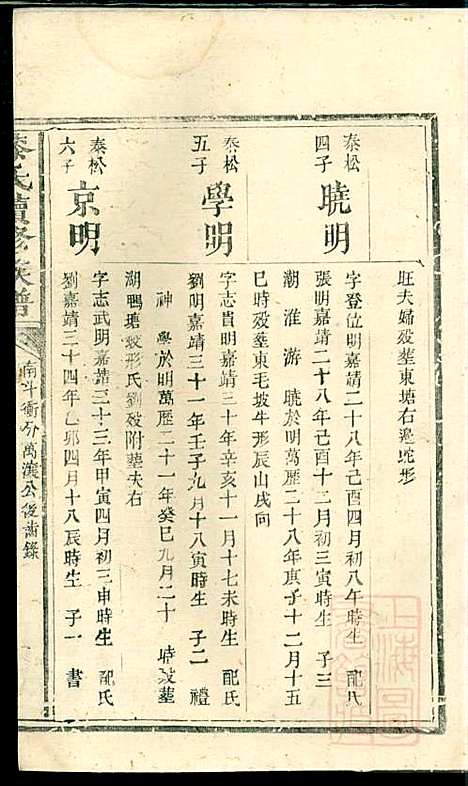 旺夫婦歿塟東塘右邉蛇形
泰松
四子
曉明
字登位明嘉靖二十八年己酉四月初八午時生 配氏
張明嘉靖二十八年己酉十二月初三寅時生 子三
潮 淮 游 曉於明萬歷二十八年庚子十二月十五
巳時歿塟東毛坡牛形辰山戌向
泰松
五子
學明
字志貴明嘉靖三十年辛亥十一月十七未時生 配氏
劉明嘉靖三十一年壬子九月十八寅時生 子二 禮
神 學於明萬歷二十一年癸巳九月二十 時歿塟
湖鴨塘蚊形氏劉歿附塟夫右
泰松
六子
京明
字志武明嘉靖三十三年甲寅四月初三申時生 配氏
劉嘉靖三十四年乙卯四月十八辰時生 子一 書
氏續修族譜
南斗衝分萬漢公後齒錄
上海圖